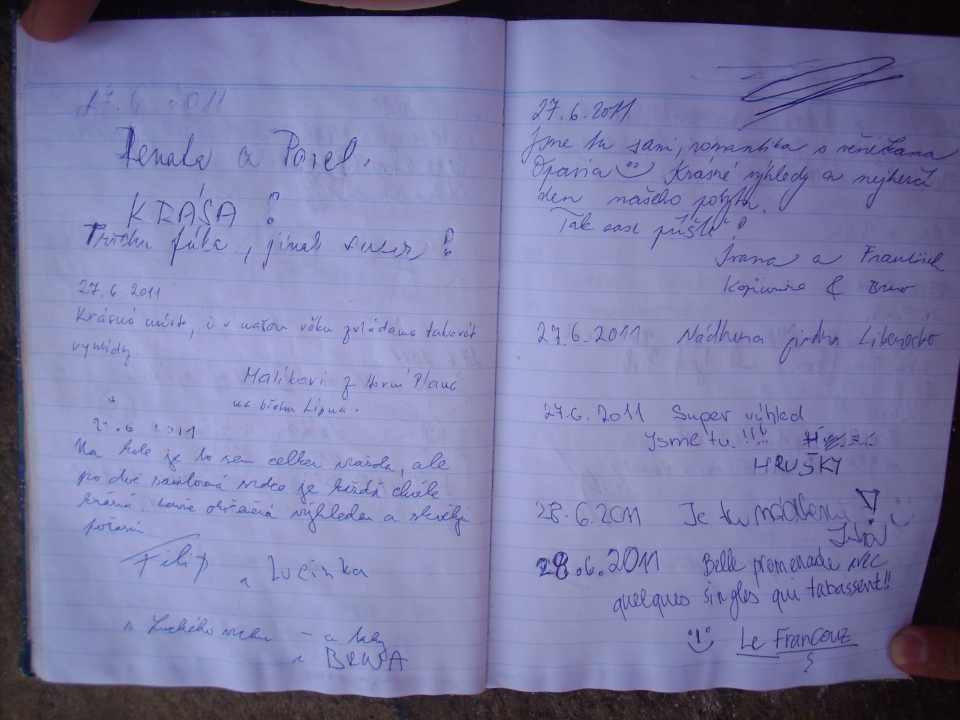 27.6.2011
Renata a Pavel.
KRÁSA!
Trochu fúká, jinak super!
27.6.2011
Krásná místa, i v našom věku zvládáme takové
vyhlídy
Malíkovi z Horní Plané
na břehu Lipna.
Na kole je to sem celkem vražda, ale
po dvě je každá chvíle
krásná. výhledem a skvělým
počasím.
Filip
a Lucinka
- a taky
z BRNA
27.6.2011
Jsme tu sami, romantika s věnečkama
Opavia Krásné výhledy a nejhezčí
den našeho pobytu.
Tak zase příště!
Ivana a František
Kopřivnice & Brno
27.6.2011 Nádhera jindra Liberecko
27.6.2011 Super výhled
Jsme tu!!!
HRUŠKY
28.6.2011 Je tu nádherně
28.6.2011 Belle promenade avec
quelques singles qui tabassent!!
Le Francouz